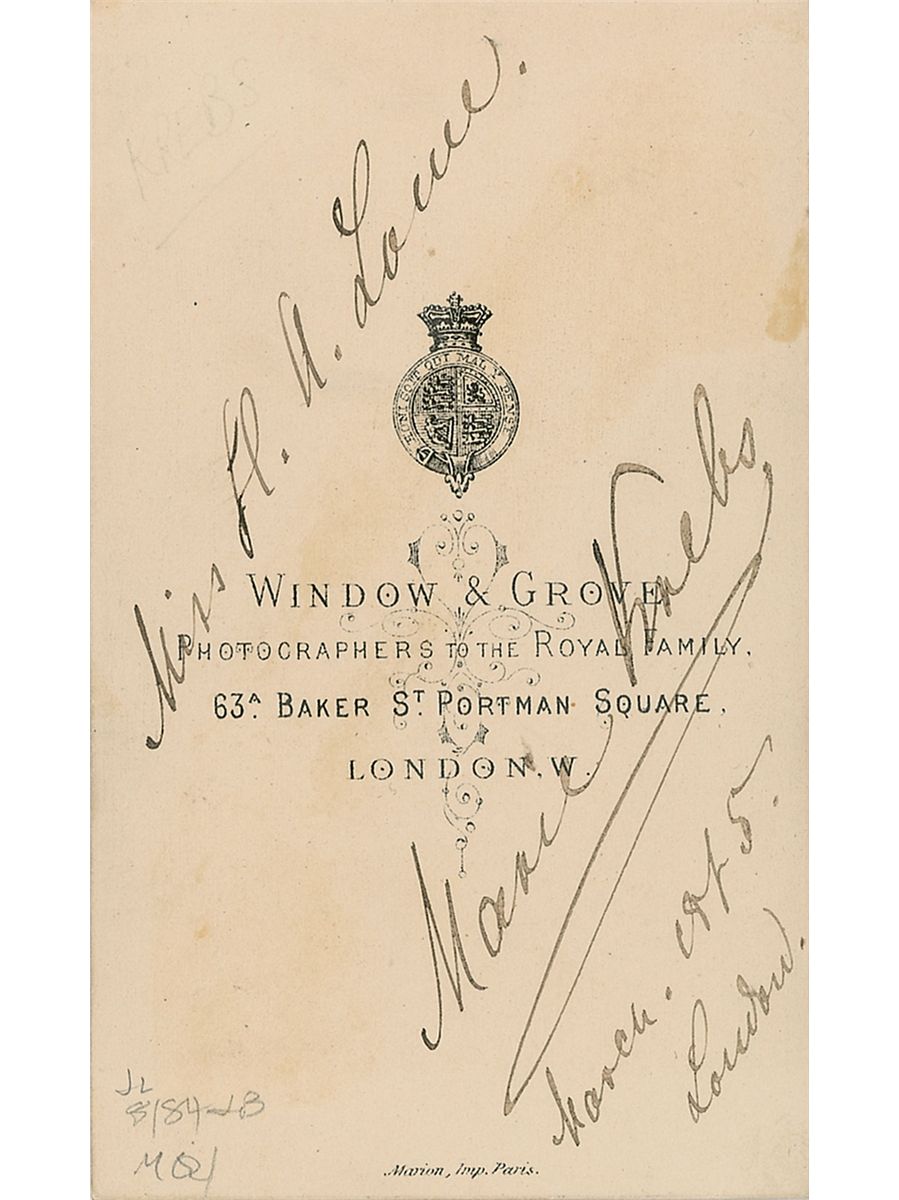 KREBS
Miss H. A. Lowe.
HONI SOIT QUI MAL Y PENSE
WINDOW & GROVE
PHOTOGRAPHERS TO THE ROYAL FAMILY,
63A. BAKER ST. PORTMAN SQUARE,
LONDON, W.
Marie Krebs,
March.
London.
8/84
Marion, Imp. Paris.